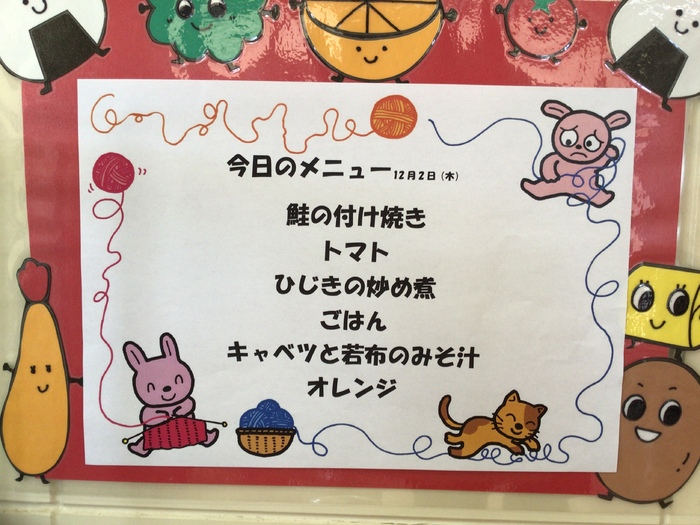 今日のメニュー12月2日(木)
鮭の付け焼き
トマト
ひじきの炒め煮
ごはん
キャベツと若布のみそ汁
オレンジ